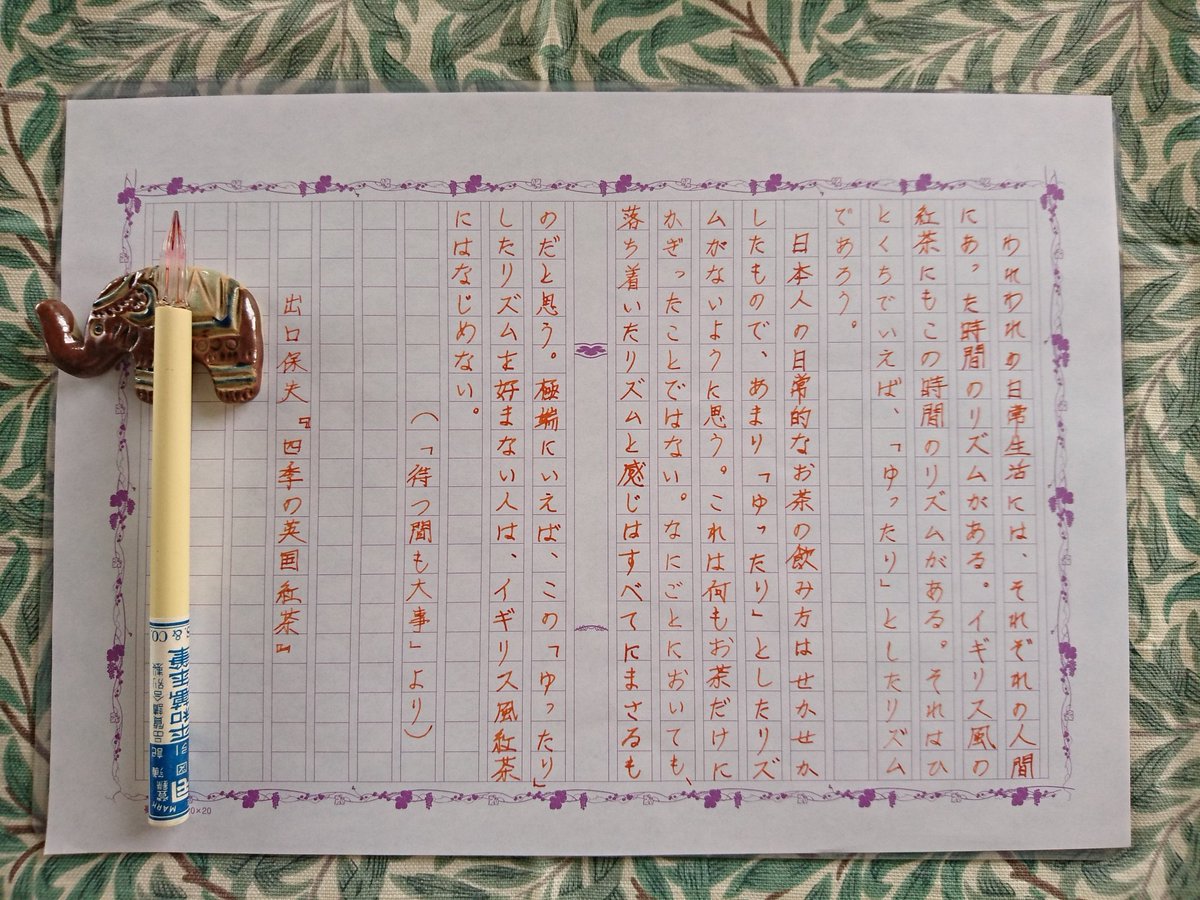 われわれの日常生活には、それぞれの人間
にあった時間のリズムがある。イギリス風の
紅茶にもこの時間のリズムがある。それはひ
とくちでいえば、「ゆったり」としたリズム
であろう。
日本人の日常的なお茶の飲み方はせかせか
したもので、あまり「ゆったり」としたリズ
ムがないように思う。これは何もお茶だけに
かぎったことではない。なにごとにおいても、
落ち着いたリズムと感じはすべてにまさるも
のだと思う。極端にいえば、この「ゆったり」
したリズムを好まない人は、イギリス風紅茶
にはなじめない。
(「待つ間も大事」より)
出口保夫『四季の英国紅茶』
0×20
& CO.